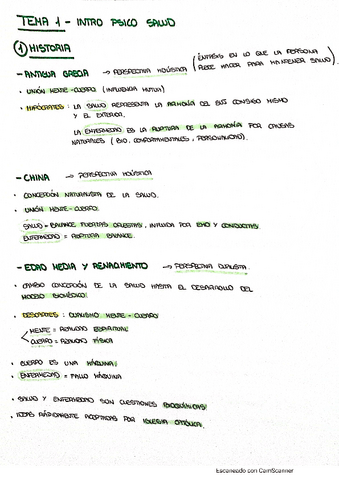 TEMA 1 - INTRO PSICO SALUD
① HISTORIA
- ANTIGUA GRECIA → PERSPECTIVA HOLÍSTICA (ÉNFASIS EN LO QUE LA PERSONA
PUEDE HACER PARA MANTENER SALUD).
· UNIÓN MENTE-CUERPO (INFLUENCIA MUTUA)
· HIPÓCRATES: LA SALUD REPRESENTA LA ARMONÍA DEL SUJ CONSIGO MISMO
Y EL EXTERIOR.
LA ENFERMEDAD ES LA RUPTURA DE LA ARMONÍA POR CAUSAS
NATURALES (BIO, COMPORTAMENTALES, PERSONALIDAD).
- CHINA → PERSPECTIVA HOLÍSTICA
· CONCEPCIÓN NATURALISTA DE LA SALUD.
· UNIÓN MENTE-CUERPO.
SALUD = BALANCE FUERZAS OPUESTAS, INFLUIDA POR EMO Y CONDUCTAS.
ENFERMEDAD = RUPTURA BALANCE.
- EDAD MEDIA Y RENACIMIENTO → PERSPECTIVA DUALISTA.
· CAMBIO CONCEPCIÓN DE LA SALUD HASTA EL DESARROLLO DEL
MODELO BIOMÉDICO.
· DESCARTES: DUALISMO MENTE-CUERPO
MENTE = REALIDAD ESPIRITUAL
CUERPO = REALIDAD FÍSICA
· CUERPO ES UNA MÁQUINA.
· ENFERMEDAD = FALLO MÁQUINA
· SALUD Y ENFERMEDAD SON CUESTIONES BIOQUÍMICAS
· IDEAS RÁPIDAMENTE ADOPTADAS POR IGLESIA CATÓLICA.
Escaneado con CamScanner